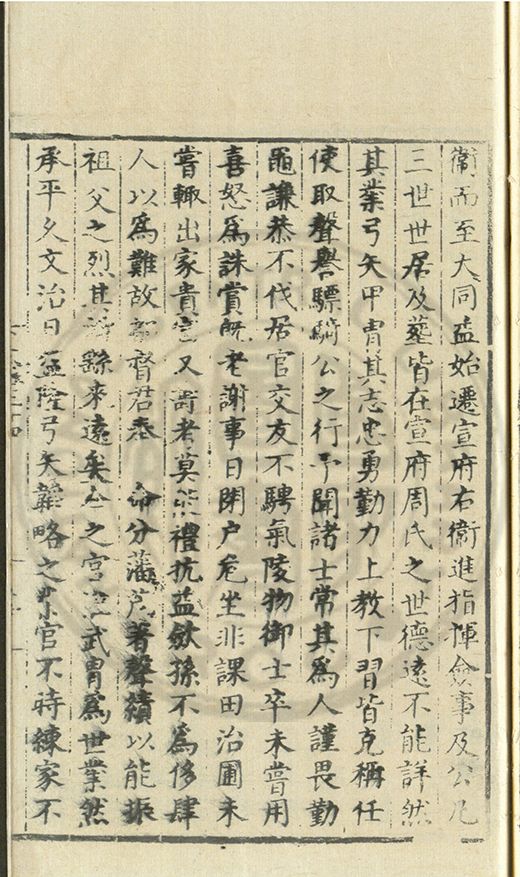 衞而至大同益始遷宣府右衞進指揮僉事及公凡
三世世居及墓皆在宣府周氏之世德遠不能詳然
其業弓矢甲冑其志忠勇勤力上教下習皆克稱任
使取聲譽驃騎公之行予聞諸士常其為人謹畏勤
黽謙恭不伐居官交友不騁氣陵物御士卒未嘗用
喜怒為誅賞既老謝事日閉户危坐非課田治圃未
嘗輒出家貴富又壽考莫能禮抗益斂孫不為侈肆
人以為難故都督君奉 命分藩 著聲績以能振
祖父之烈其 繇來遠矣 之官 武冑為世業然
承平久文治日益隆弓矢韜略之 官不時練家不